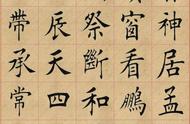 神居孟
窗看鵬
祭斷和
辰天四
帶承常